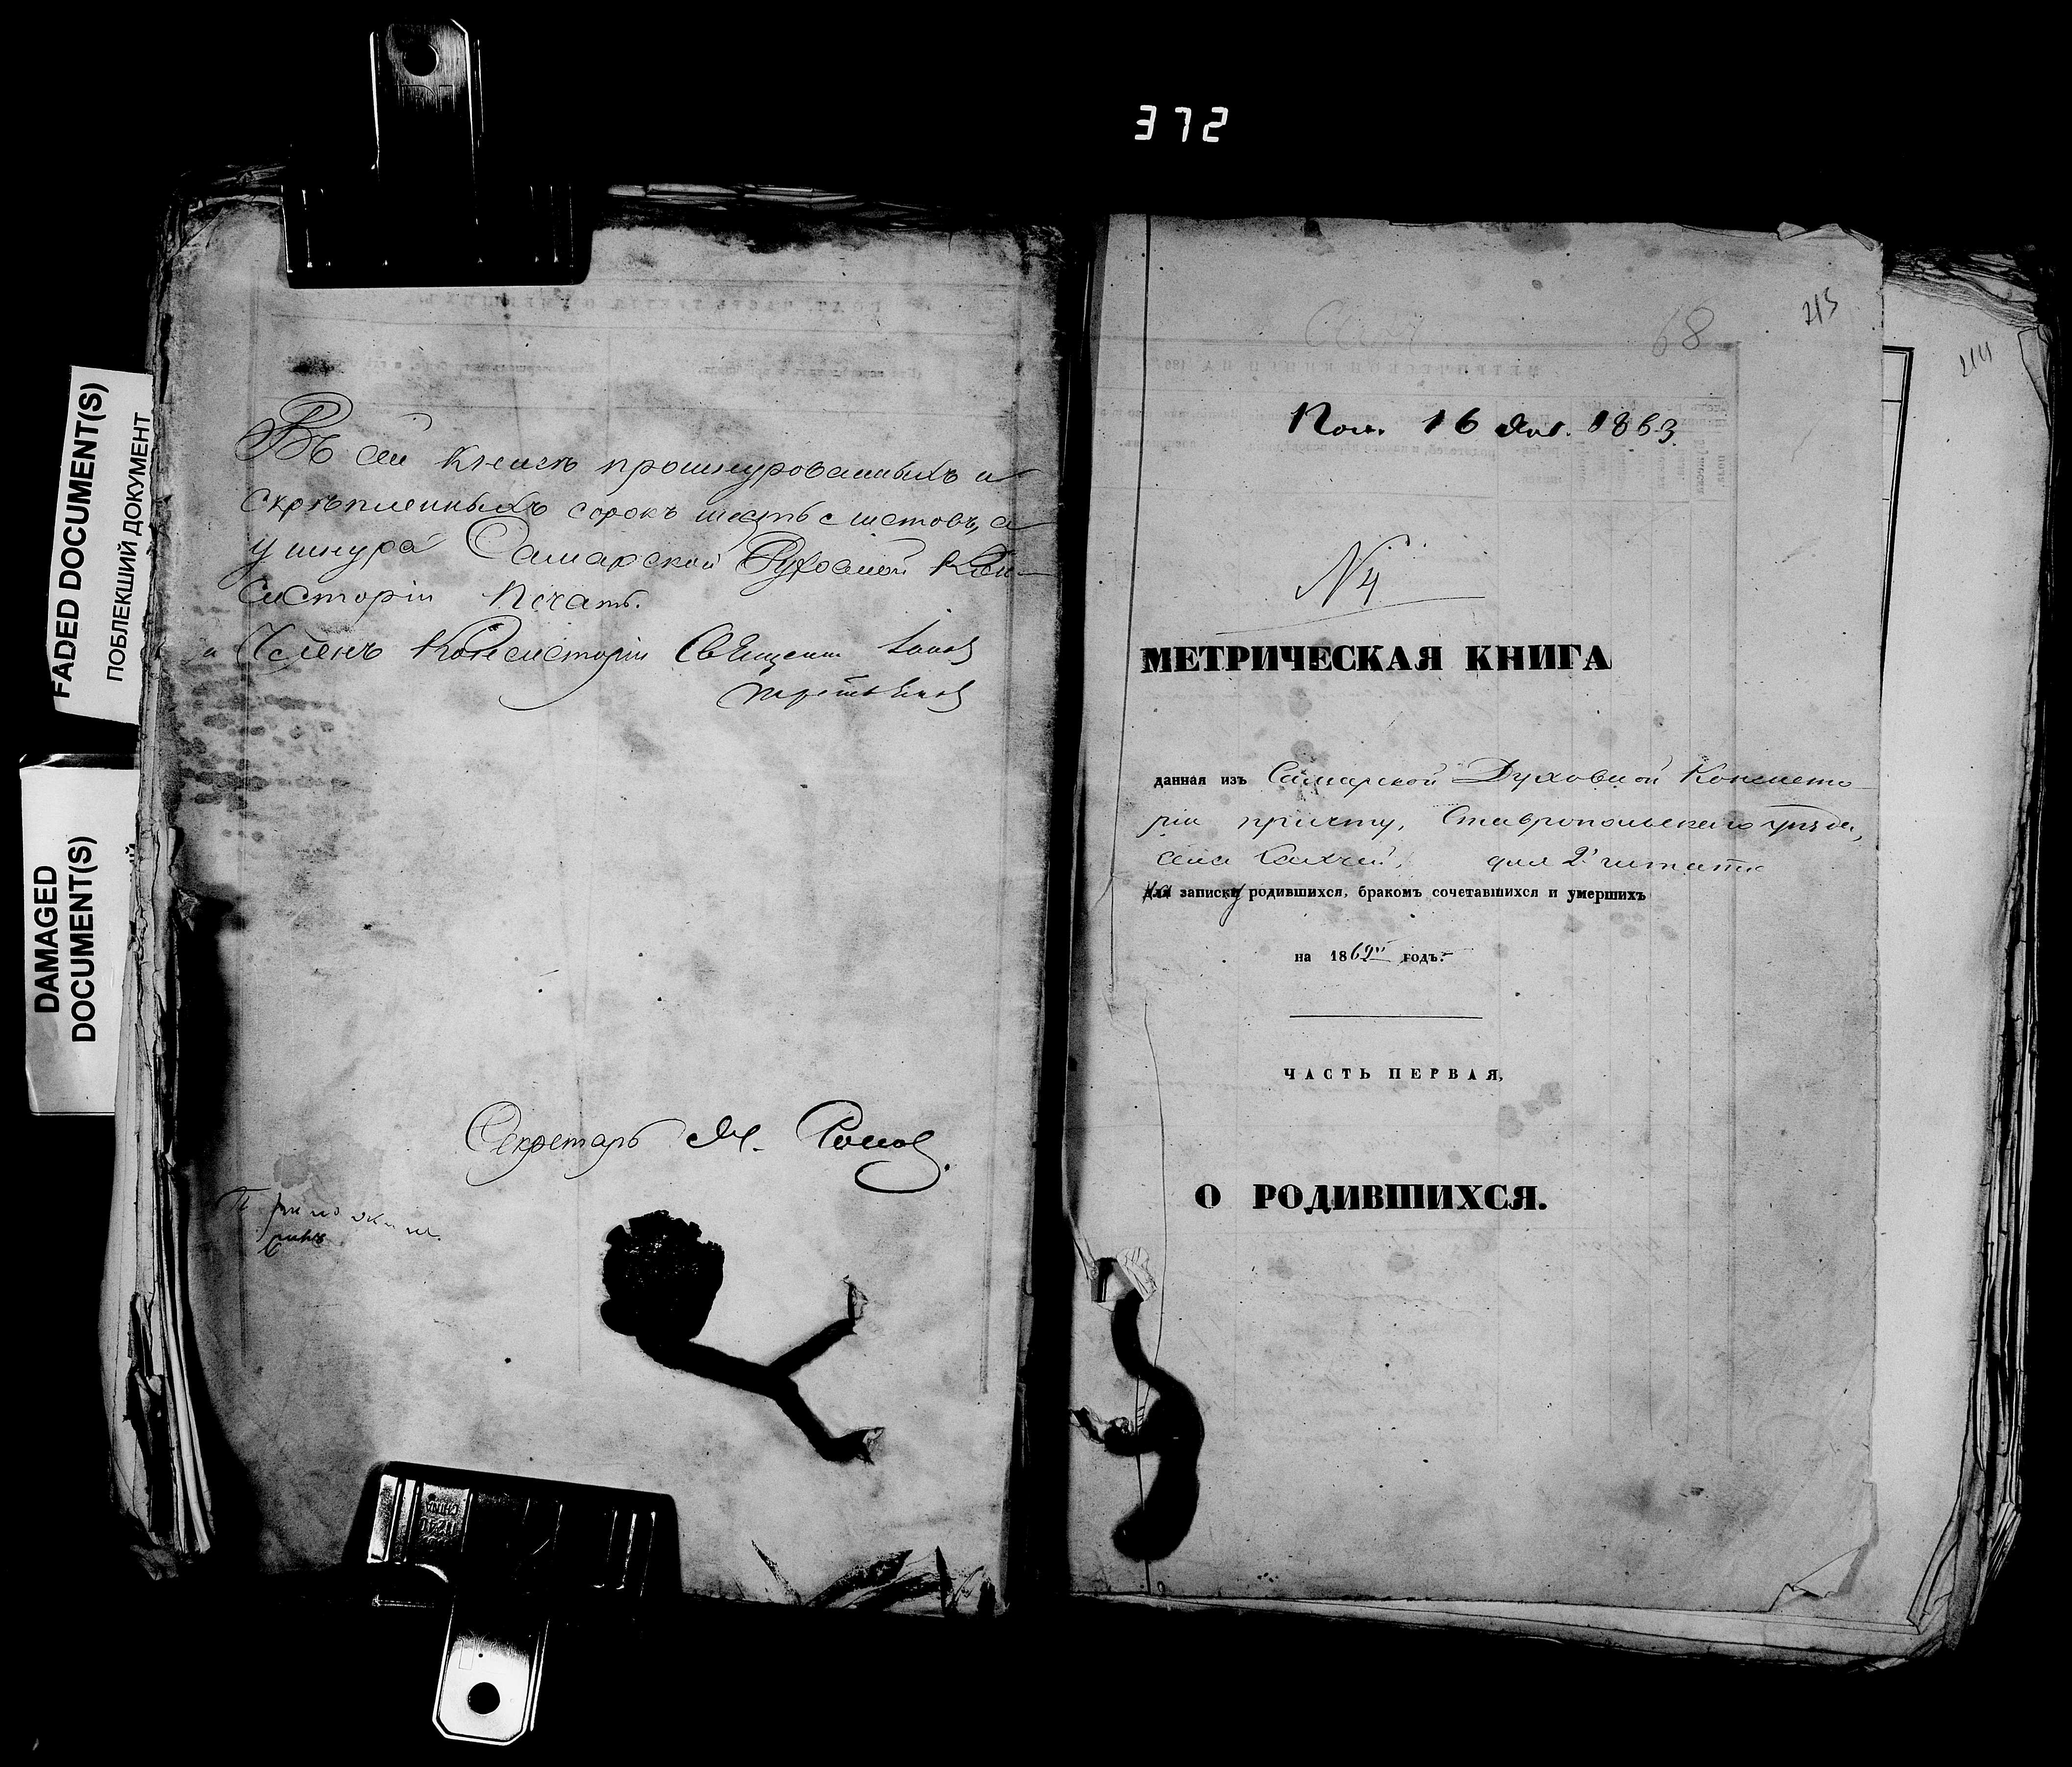 372
FADED DOCUMENT(S)
ПОБЛЕКШИЙ ДОКУМЕНТ
DAMAGED
DOCUMENT(S)
Въ сей книгѣ прошнурованныхъ и
скрѣпленныхъ сорокъ шесть листовъ, а
у шнура Самарской Духовной Кон-
систоріи печать.
Членъ Консисторіи Священн Іоаннъ
Третьяков
Секретарь М. Попов.
215
68
Пол. 16 Янв. 1863
N 4
МЕТРИЧЕСКАЯ КНИГА
данная изъ Самарской Духовной Консисто
ріи причту, Ставропольскаго уѣзда,
села для 2 штата
на записку родившихся, бракомъ сочетавшихся и умершихъ
на 1862й годъ.
ЧАСТЬ ПЕРВАЯ,
О РОДИВШИХСЯ.